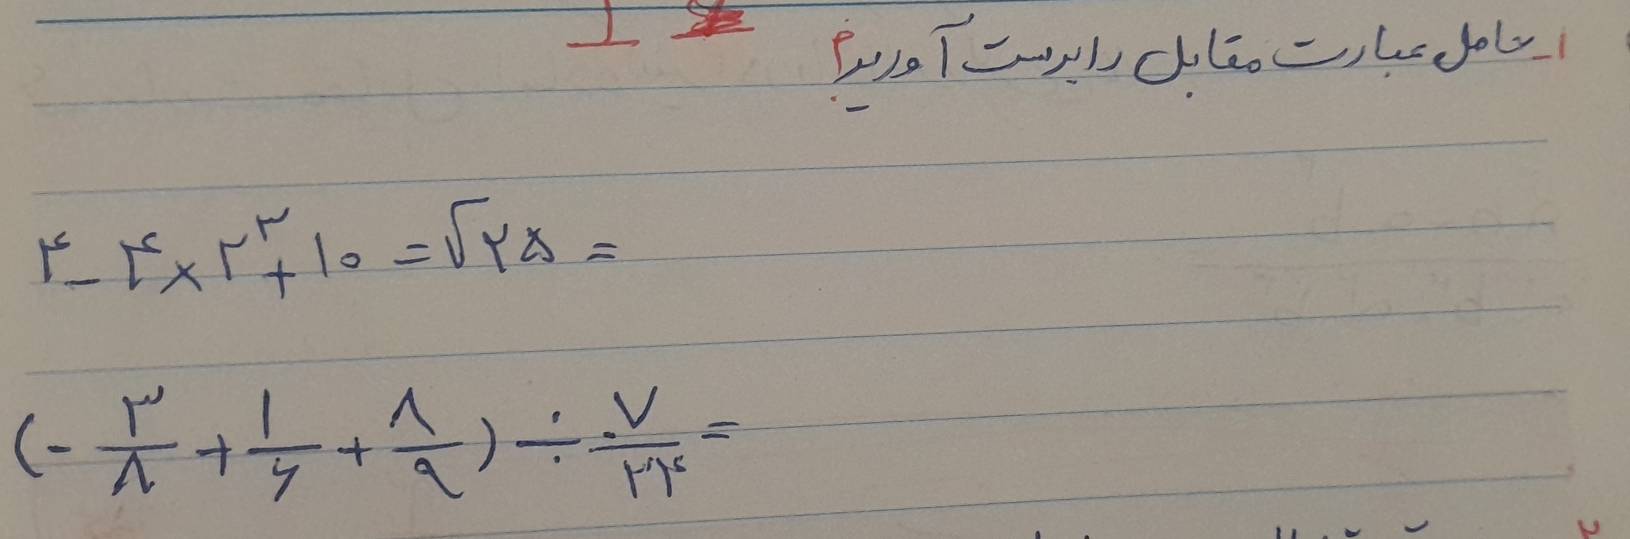 ۱- حاصل عبارت مقابل را بدست آورید؟
۴ - ۴ × ۲^۳ + ۱۰ = √۲۵ =
(- ۳/۸ + ۱/۶ + ۸/۹) ÷ ۷/۲۴ =
۲